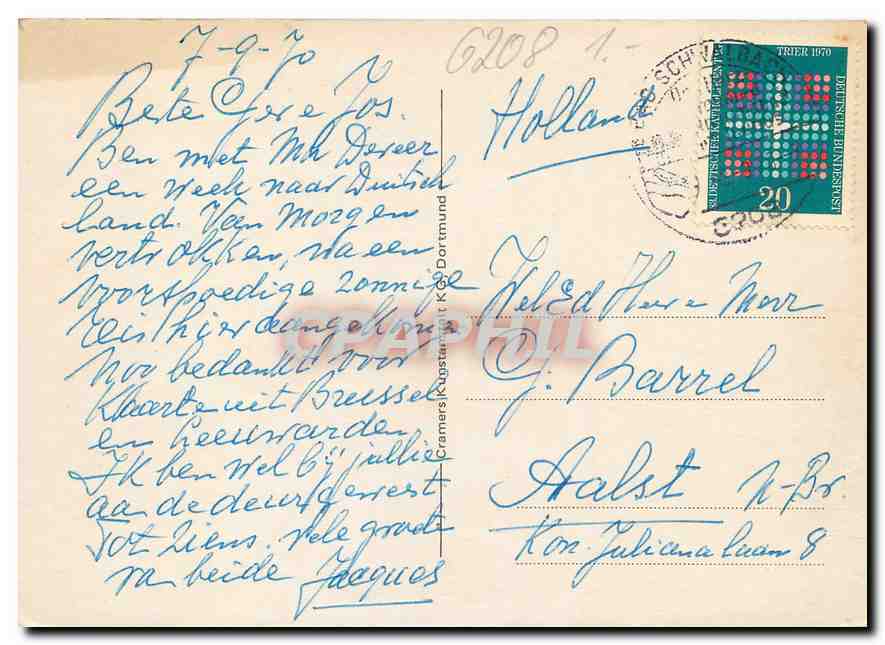 7-9-70
Beste Ger e Jos.
Ben met Mh Dereer
een week naar Duitsch
land. Van morgen
vertrokken, na een
voorspoedige zonnige
reis hier aangekome
Nog bedankt voor
Kaarte uit Brussel
en Leeuwarden
Ik ben wel bij jullie
aan de deur geweest
Tot ziens. vele groete
van beide Jacques
Cramers Kunstanstalt KG. Dortmund
6208 1.-
Holland
TRIER 1970
DEUTSCHER KATHOLIKENTAG
DEUTSCHE BUNDESPOST
20
SCHWALBACH
6208
CPAPHIL
Wel Ed Heer e Mevr
G. Barrel
Aalst N-Br.
Kon. Julianalaan 8